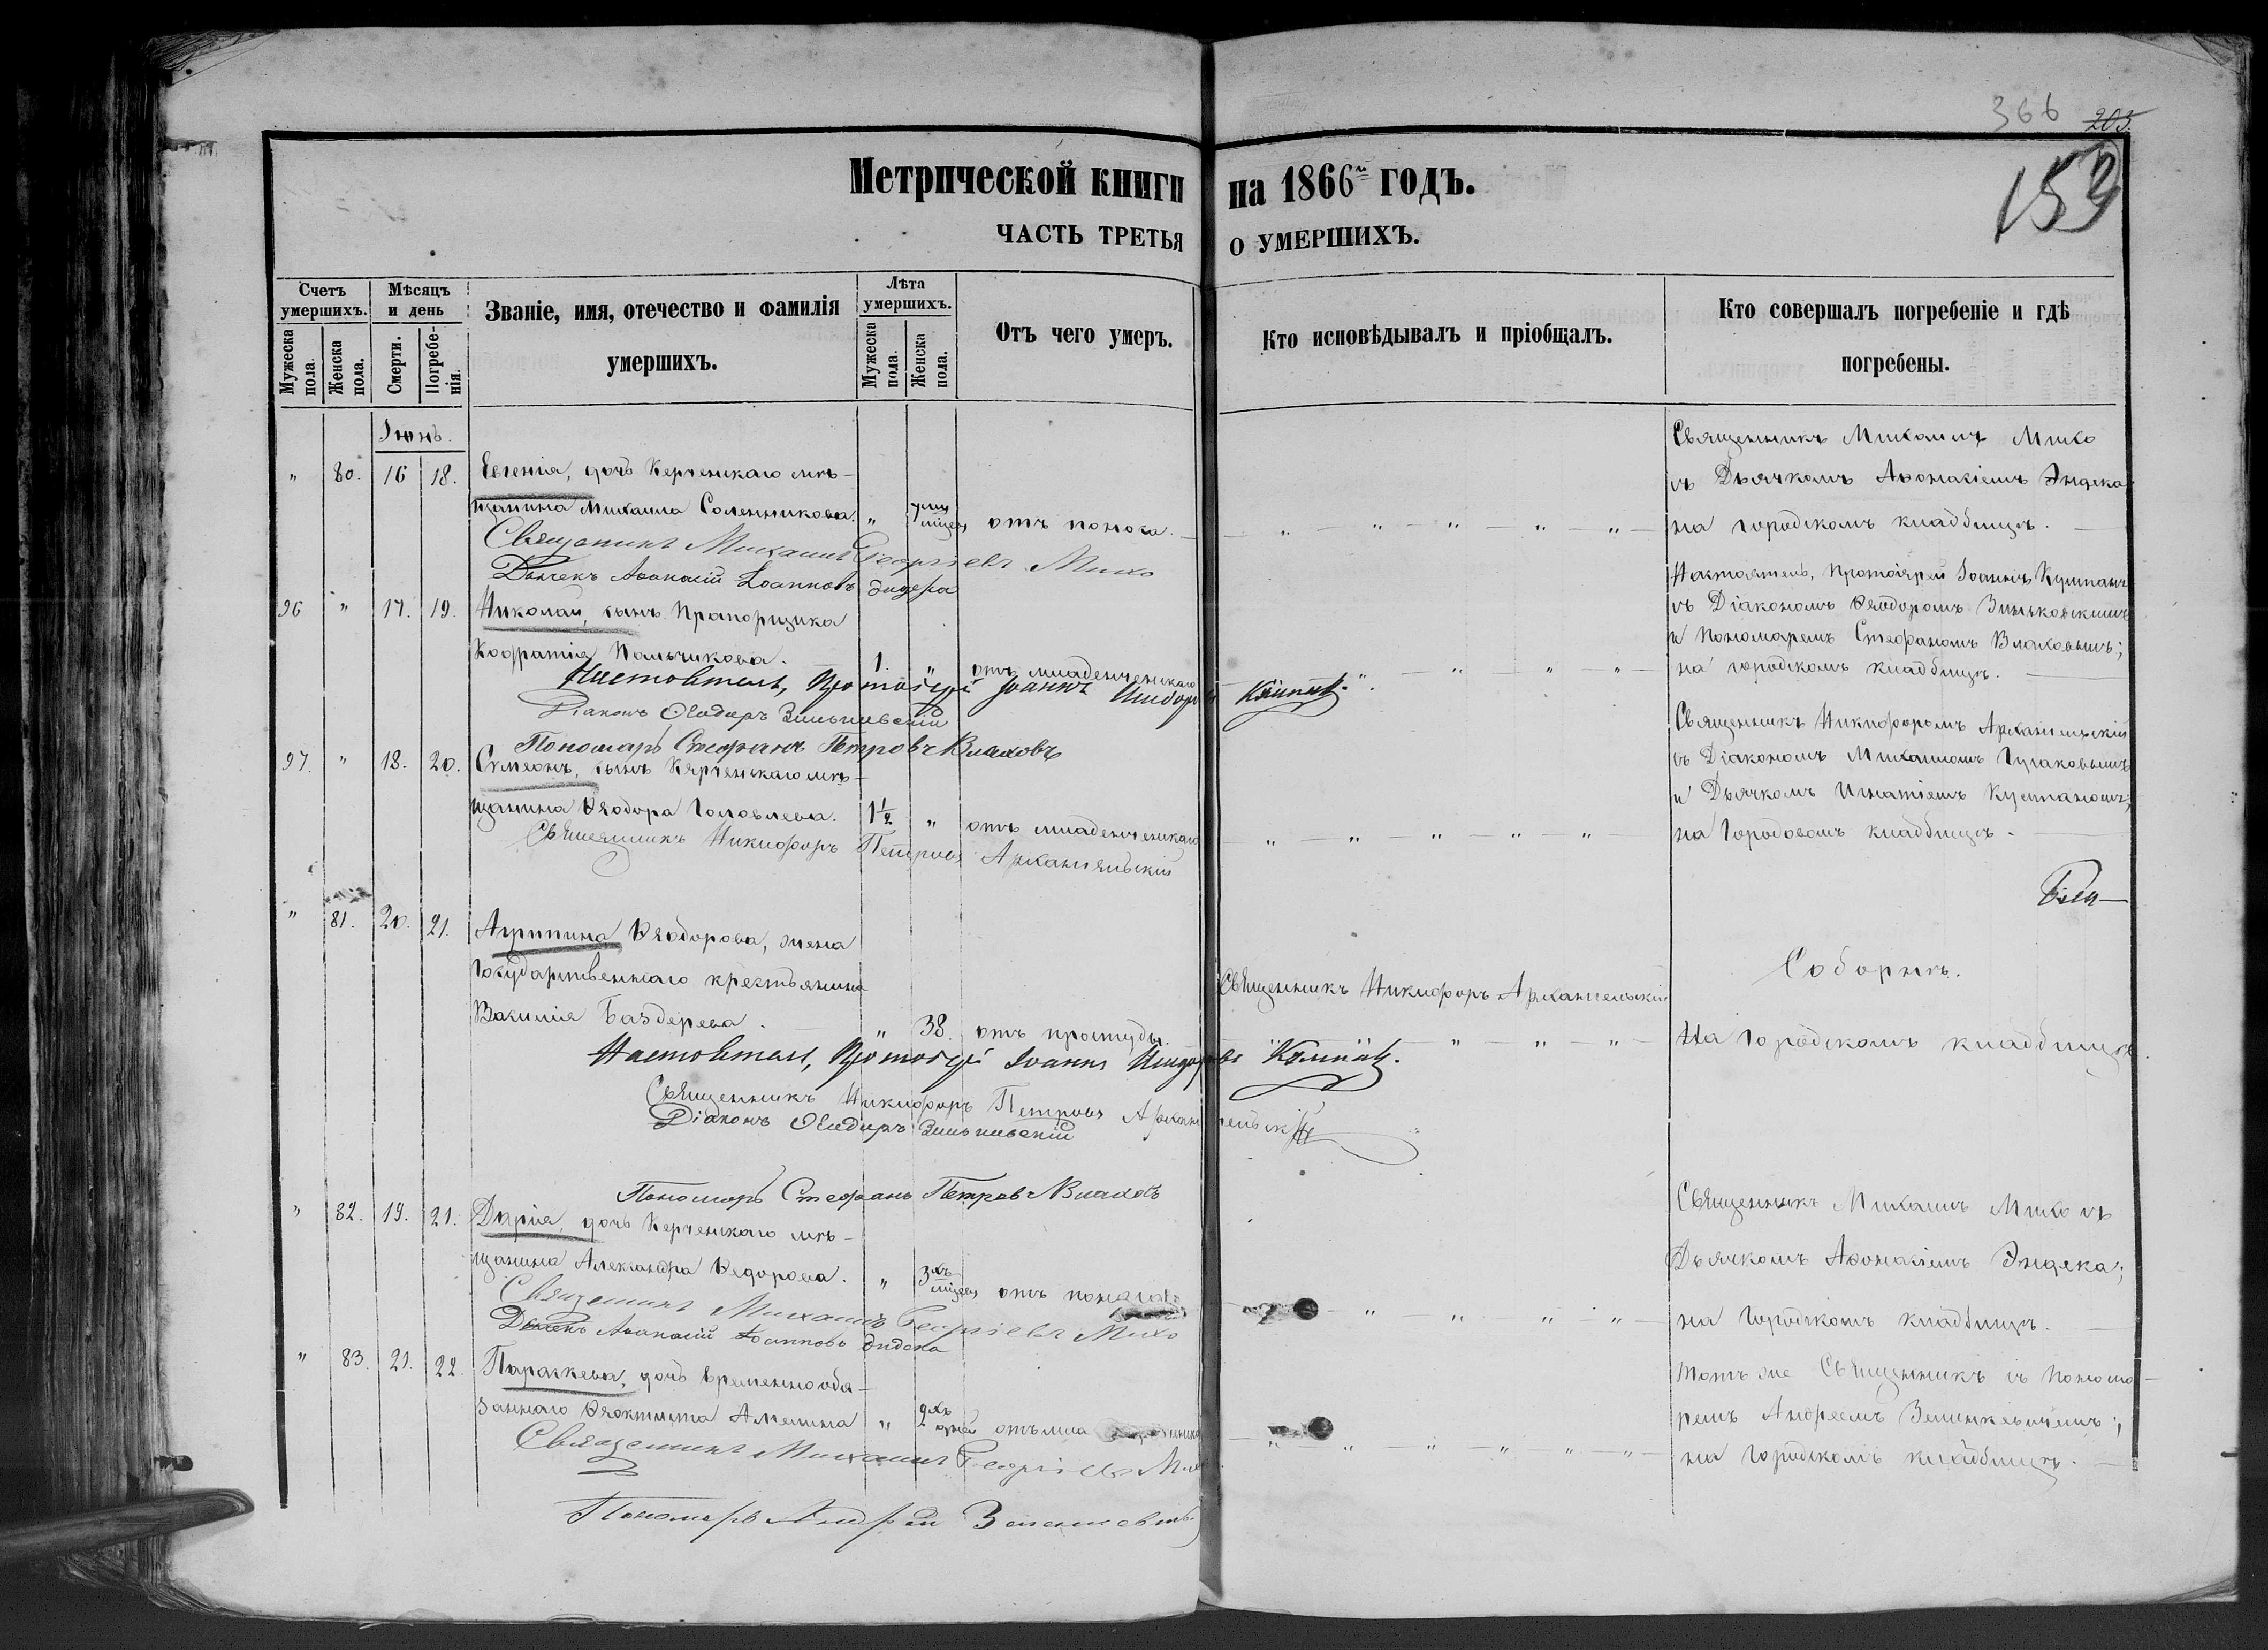 366 203
153
Метрической книги на 1866й годъ.
ЧАСТЬ ТРЕТЬЯ О УМЕРШИХЪ.
Счетъ умершихъ.
Мужеска пола.
Женска пола.
Мѣсяцъ и день
Смерти.
Погребенія.
Званіе, имя, отечество и фамилія умершихъ.
Лѣта умершихъ.
Мужеска пола.
Женска пола.
Отъ чего умеръ.
Кто исповѣдывалъ и пріобщалъ.
Кто совершалъ погребеніе и гдѣ погребены.
Іюнь.
" 80. 16 18. Евгенія, дочь Керченскаго мѣ-
щанина Михаила Соленникова. " 7 мѣсяц отъ поноса.
Священникъ Михаилъ Михо
съ Дьячкомъ Афонасіемъ Эндека
на городскомъ кладбищѣ.
Священникъ Михаилъ Георгіевъ Михо
Дьячекъ Афанасій Іоанновъ Эндека
96 " 17. 19. Николай, сынъ Прапорщика
Кодратія Пальчикова. 1. " отъ младенческаго
Настоятель, Протоіерей Іоаннъ
съ Діакономъ Ѳеодоромъ Зиньковскимъ
и Пономаремъ Стефаномъ Влаховымъ;
на городскомъ кладбищѣ.
Настоятель, Протоіерей Іоаннъ
Діаконъ Ѳеодоръ Зиньковскій
Пономарь Стефанъ Петровъ Влаховъ
97. " 18. 20. Симеонъ, сынъ Керченскаго мѣ-
щанина Ѳеодора Головлева. 1½ " отъ младенческаго
Священникъ Никифоромъ Архангельскій
съ Діакономъ Михаиломъ
и Дьячкомъ Игнатіемъ
на Городовомъ кладбищѣ.
Священникъ Никифоръ Петровъ Архангельскій
" 81. 20. 21. Агрипина Ѳеодорова, жена
Государственнаго крестьянина
Василія Баздерева. " 38. отъ простуды.
Священникъ Никифоръ Архангельскій
Соборнѣ.
На Городскомъ кладбищѣ.
Настоятель, Протоіерей Іоаннъ
Священникъ Никифоръ Петровъ Архангельскій
Діаконъ Ѳеодоръ Зиньковскій
Пономарь Стефанъ Петровъ Влаховъ
" 82. 19. 21. Дарія, дочь Керченскаго мѣ-
щанина Александра Ѳедорова. " 3хъ мѣсяц отъ поноса
Священникъ Михаилъ Михо съ
Дьячкомъ Афонасіемъ Эндека;
на Городскомъ кладбищѣ.
Священникъ Михаилъ Георгіевъ Михо
Дьячекъ Афанасій Іоанновъ Эндека
" 83. 21. 22. Параскева, дочь временнообя-
заннаго Ѳеоктиста Амелина " 2хъ дней
тотъ же Священникъ съ Понома-
ремъ Андреемъ Зелинкевичемъ;
на городскомъ кладбищѣ.
Священникъ Михаилъ Георгіевъ Михо
Пономарь Андрей Зелинкевичъ